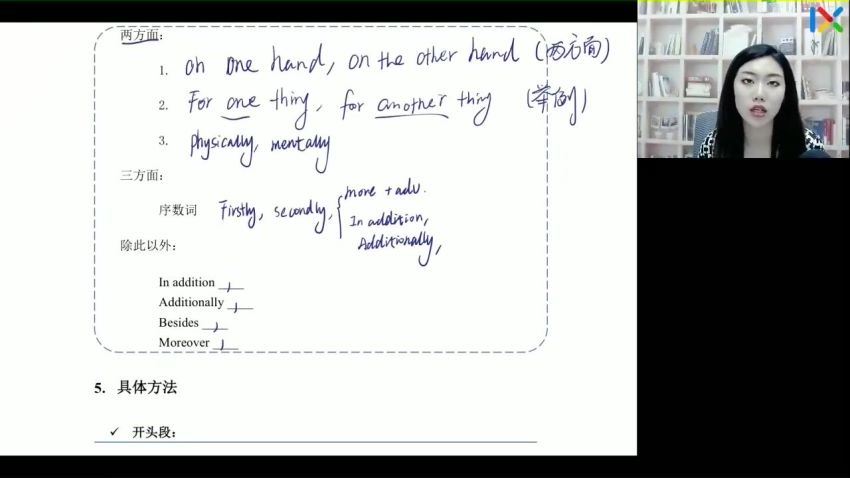 两方面:
1. on one hand, on the other hand (两方面)
2. For one thing, for another thing (举例)
3. physically, mentally
三方面:
序数词 Firstly, secondly, more + adv.
In addition,
Additionally,
除此以外:
In addition ,
Additionally ,
Besides ,
Moreover ,
5. 具体方法
✓ 开头段: